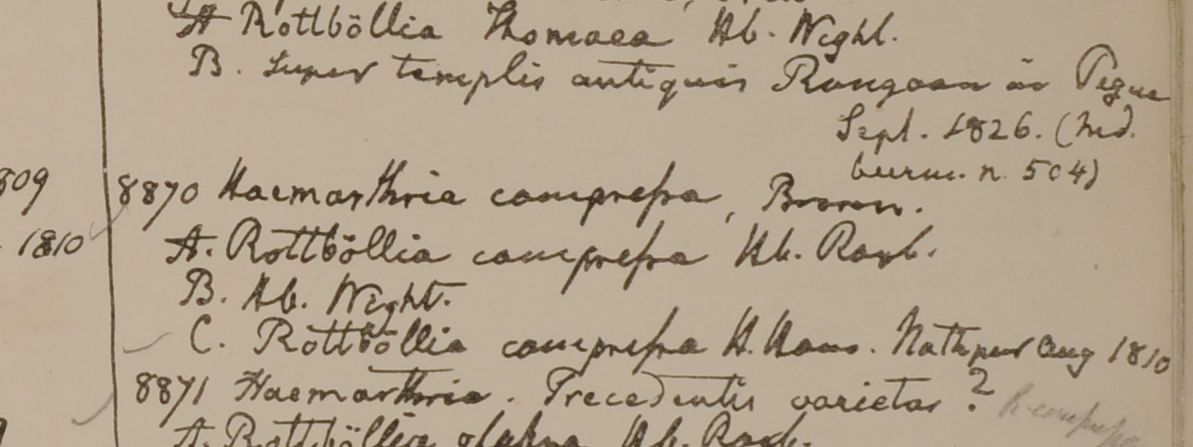 A Rottböllia Thomaea Hb. Wight.
B. Super templis antiquis Rangoon in Pegue
Sept. 1826. (Med.
burm. n. 504)
809 8870 Haemarthria compreſsa, Brown.
1810 A. Rottböllia compreſsa Hb. Roxb.
B. Hb. Wight.
C. Rottböllia compreſsa H. Ham. Nathpur Aug 1810
8871 Haemarthria. Precedentis varietas?
A. Rottböllia glabra Hb. Roxb.